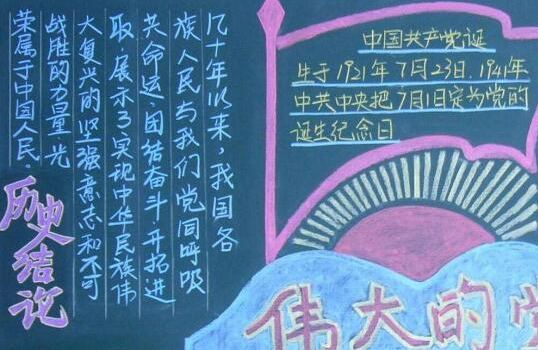 中国共产党诞
生于1921年7月23日.1941年
中共中央把7月1日定为党的
诞生纪念日
几十年以来,我国各
族人民与我们党同呼吸
共命运、团结奋斗开拓进
取,展示了实现中华民族伟
大复兴的坚强意志和不可
战胜的力量光
荣属于中国人民.
历史结论
伟大的